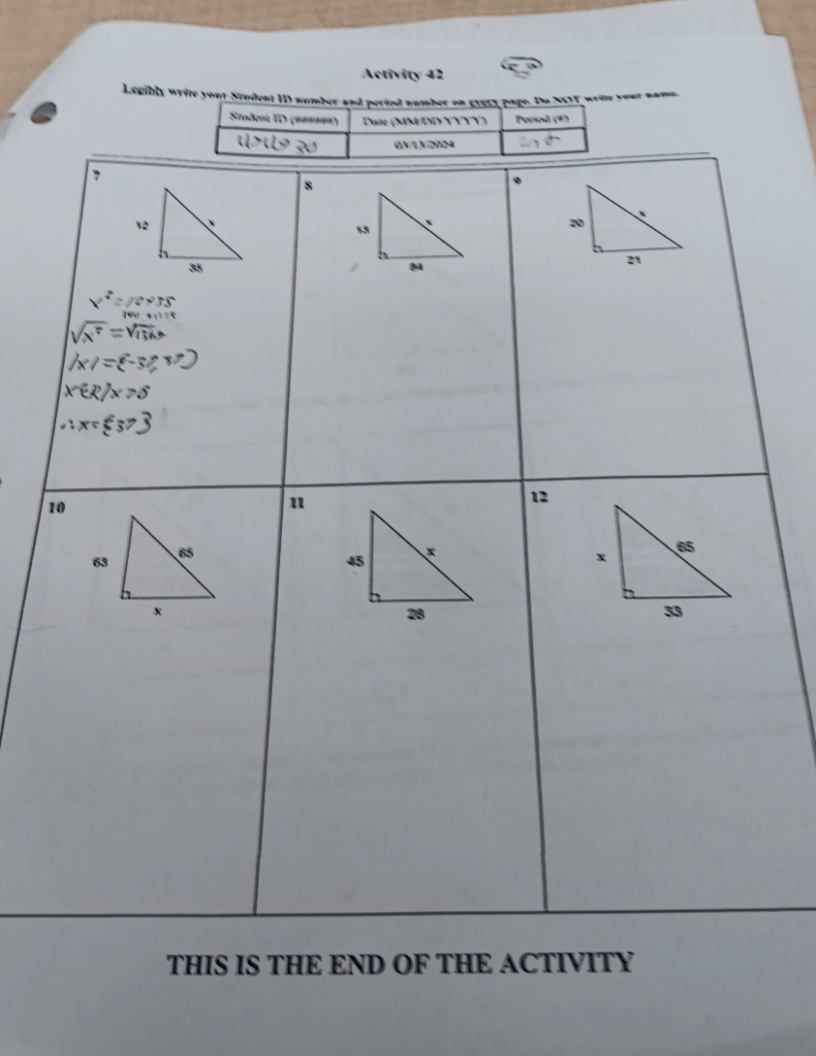 Activity 42
Legibly write your Student ID number and period number on every page. Do NOT write your name.
Student ID (######) Date (MM/DD/YYYY) Period (#)
03/13/2024
7
12
x
35
8
13
x
84
9
20
x
21
√x² = √1369
∴x={37}
10
63
65
x
11
45
x
28
12
x
65
33
THIS IS THE END OF THE ACTIVITY